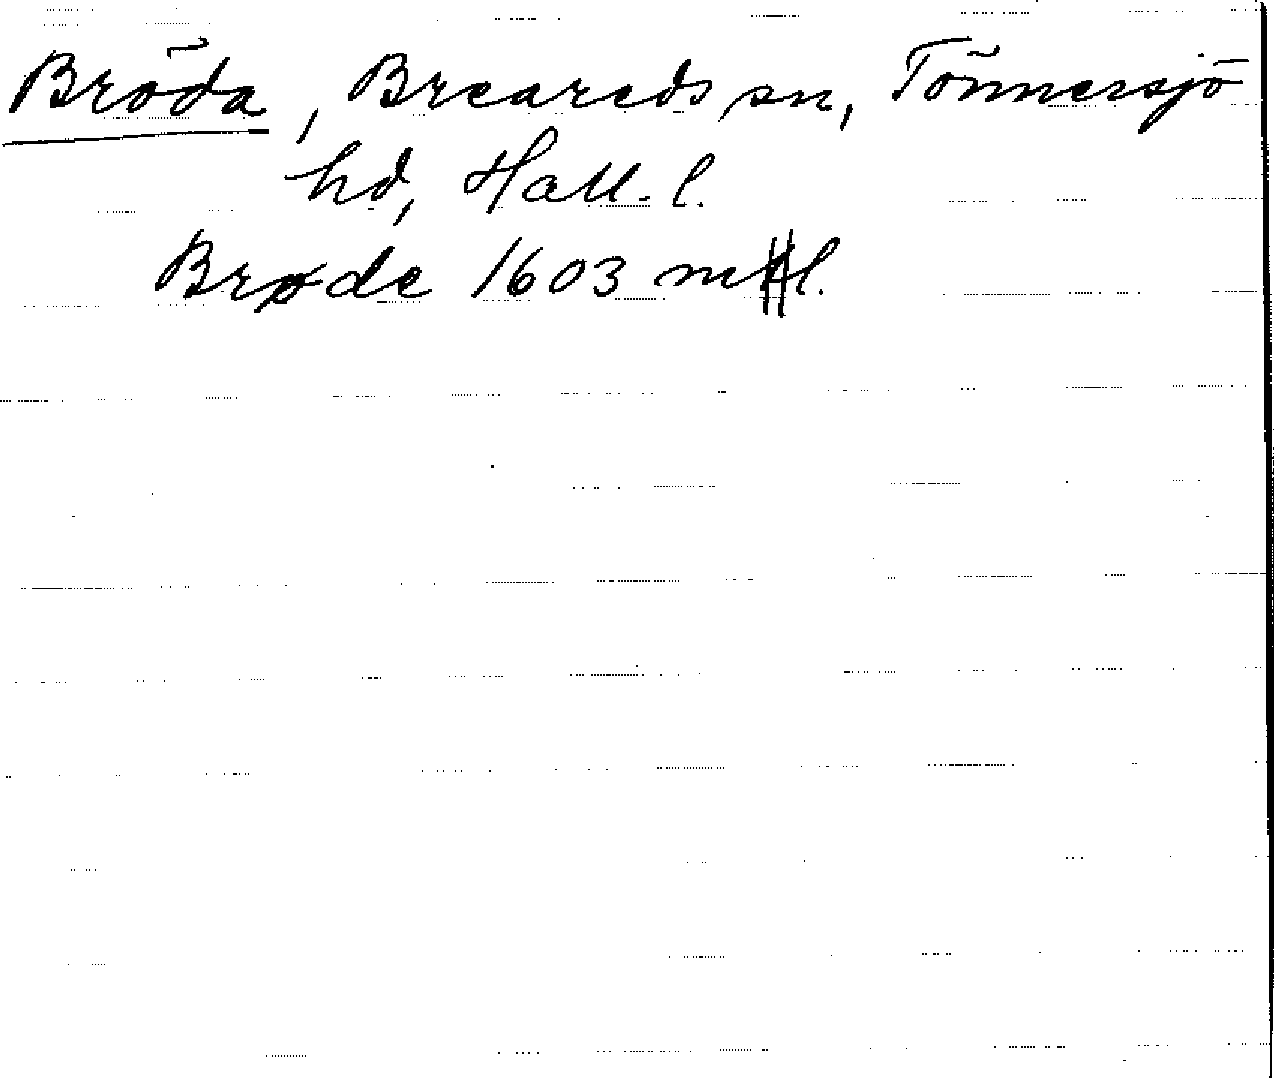 Bröda, Breareds sn, Tönnersjö
hd, Hall. l.
Brøde 1603